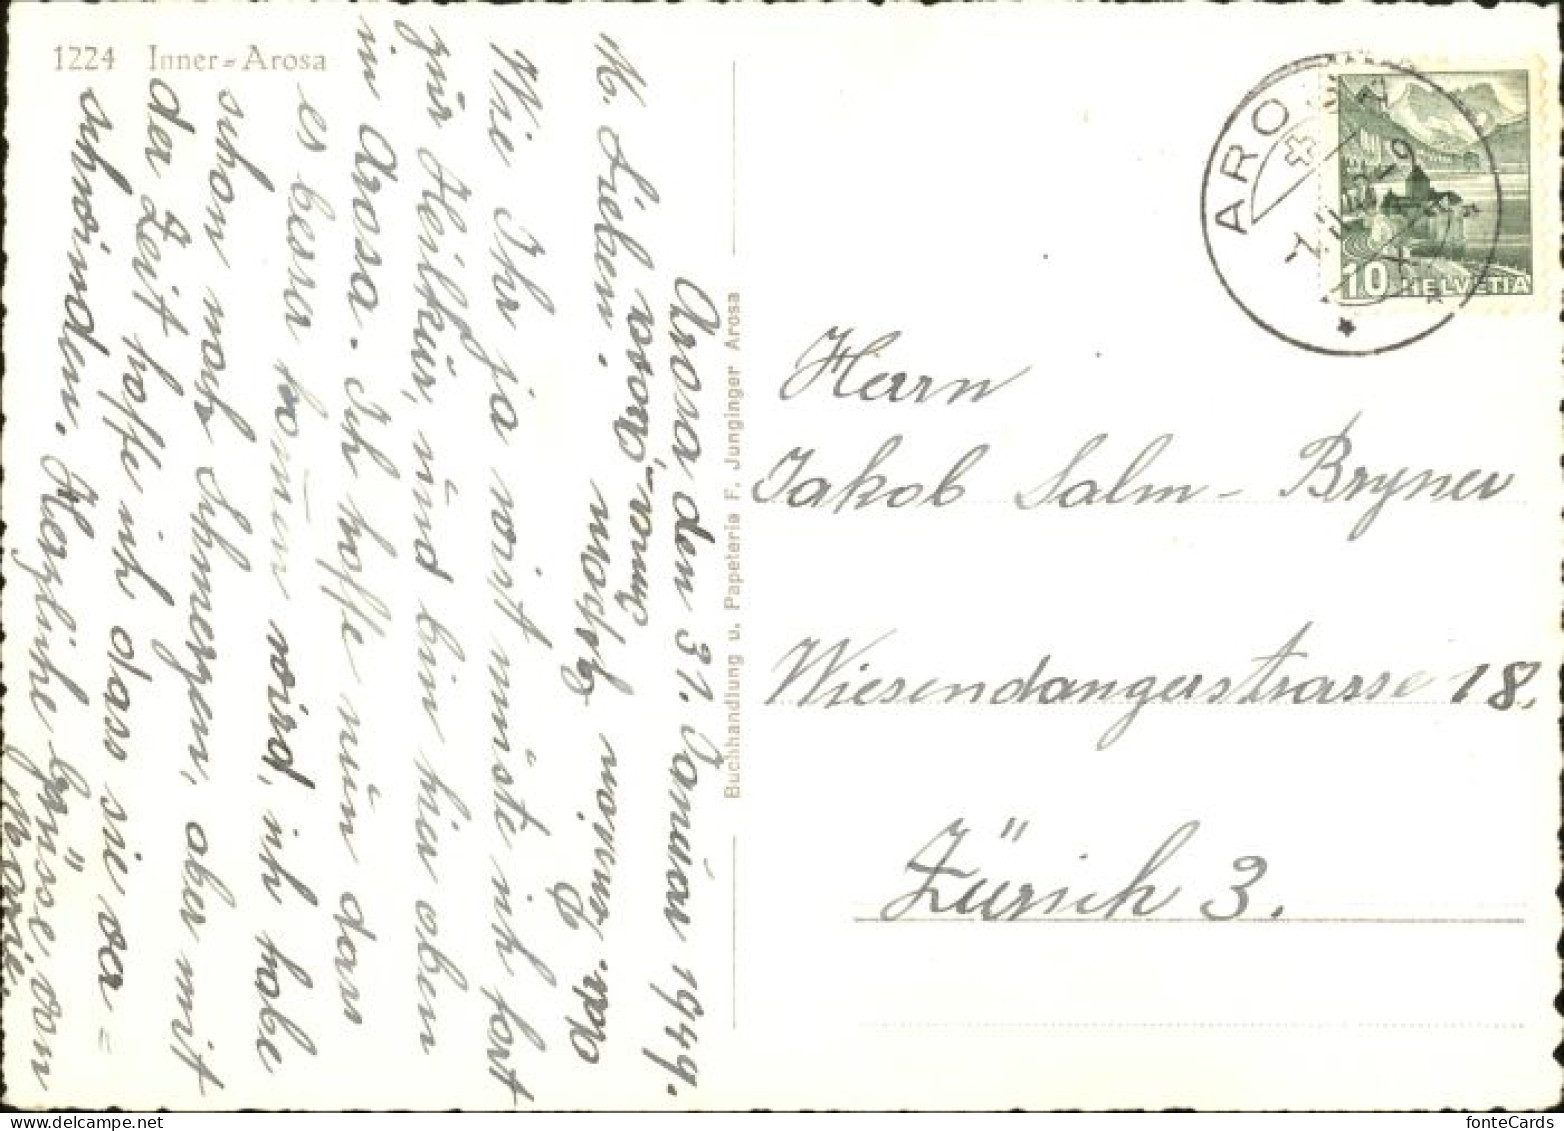 1224 Inner-Arosa
Arosa den 31. Januar 1949.
M. Lieben!
Wie Ihr ja wisst müste ich fort
zur Heilkur, und bin hier oben
in Arosa. Ich hoffe nun dass
es besser kommen wird, ich habe
schon noch Schmerzen, aber mit
der Zeit hoffe ich dass sie ver=
schwinden. Herzliche Grüsse, von
Marie
Buchhandlung u. Papeterie F. Junginger Arosa
AROSA
10
HELVETIA
Herrn
Jakob Salm-Bryner
Wiesendangerstrasse 18.
Zürich 3.
fonteCards